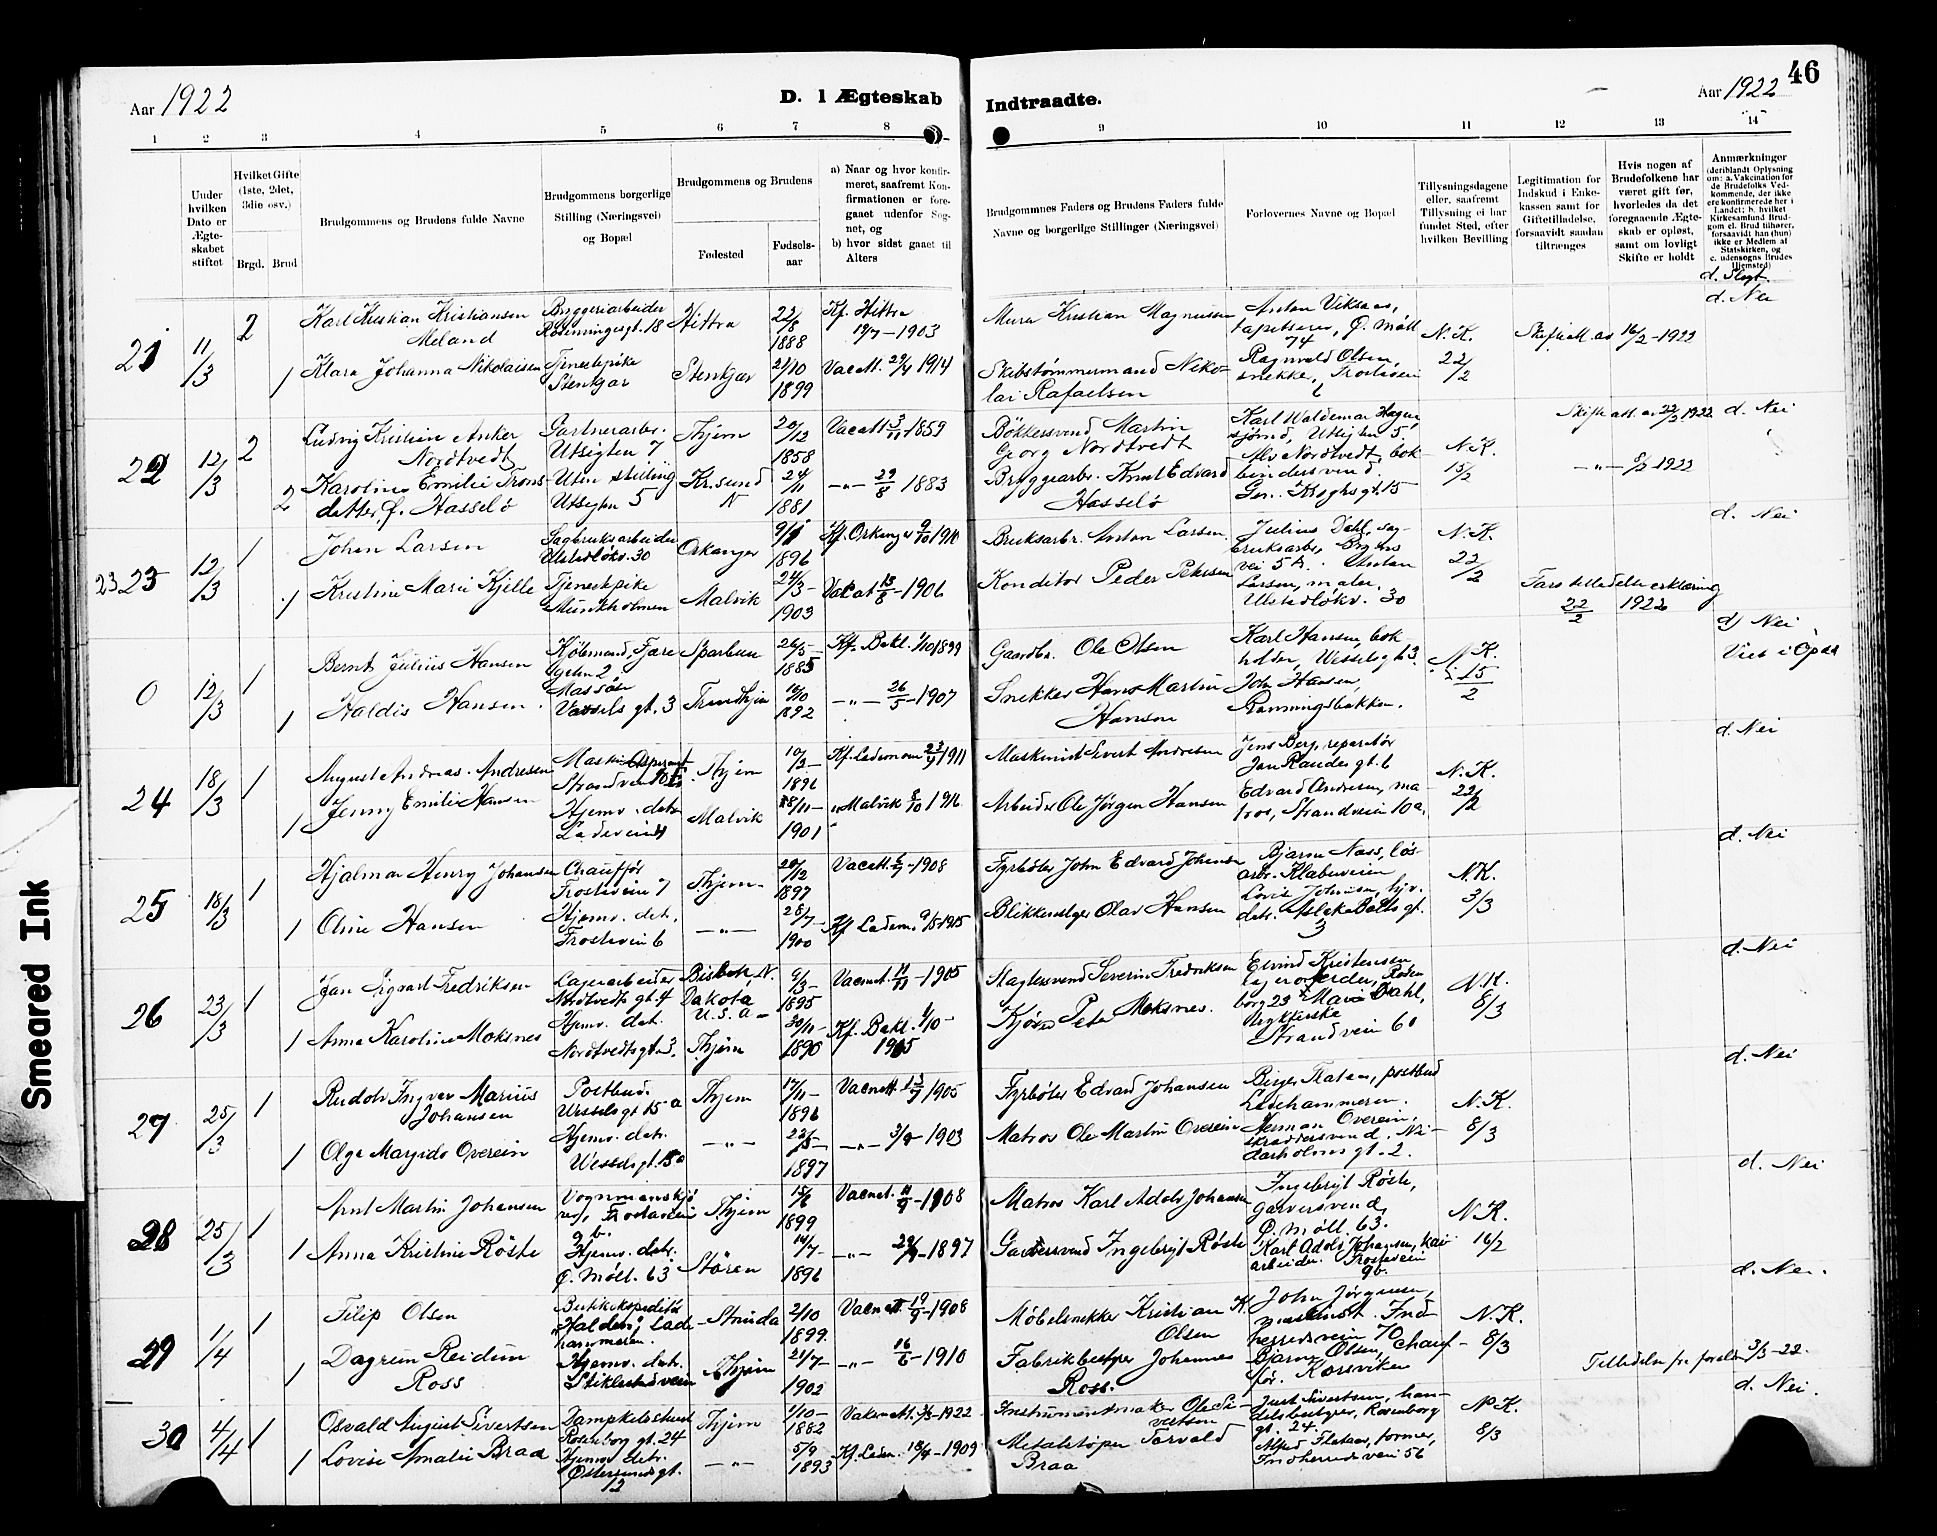 46
Aar 1922
D. I Ægteskab
Indtraadte.
Aar 1922
1 2 3 4 5 6 7 8 9 10 11 12 13 14
Under hvilken Dato er Ægteskabet stiftet
Hvilket Gifte (1ste, 2det, 3die osv.)
Brgd. Brud
Brudgommens og Brudens fulde Navne
Brudgommens borgerlige Stilling (Næringsvei) og Bopæl
Brudgommens og Brudens
Fødested
Fødselsaar
a) Naar og hvor konfirmeret, saafremt Konfirmationen er foregaaet udenfor Sognet, og
b) hvor sidst gaaet til Alters
Brudgommes Faders og Brudens Faders fulde Navne og borgerlige Stillinger (Næringsvei)
Forlovernes Navne og Bopæl
Tillysningsdagene eller, saafremt Tillysning ei har fundet Sted, efter hvilken Bevilling
Legitimation for Indskud i Enkekassen samt for Giftetilladelse, forsaavidt saadan tiltrænges
Hvis nogen af Brudefolkene har været gift før, hvorledes da det foregaaende Ægteskab er opløst, samt om lovligt Skifte er holdt
Anmærkninger (deriblandt Oplysning om: a. Vakcination for de Brudefolks Vedkommende, der ikke ere konfirmerede her i Landet; b. hvilket Kirkesamfund Brudgom el. Brud tilhører, forsaavidt han (hun) ikke er Medlem af Statskirken, og c. udensogns Brudes Hjemsted)
d. Slegt
21 11/3 2 Karl Kristian Kristiansen Meland Bryggeriarbeider Rosenborgsgt. 18 Hittra 22/8 1888 Kf. Hittra 1903 Murer Kristian Magnussen Anton Viksaas, tapetserer, Ø. Møll. 74 N.K. 22/2 Skifteatt. av 16/2-1922 d. Nei
1 Klara Johanna Nikolaisen Tjenestepike Stenkjær Stenkjær 21/10 1899 Vacatt. 29/4 1914 Skibstømmermand Nikolai Rafaelsen Ragnvald Olsen, snekker, Frostaveien 6
22 12/3 2 Ludvig Kristian Anker Nordtvedt Gartnerarbr. Utsigten 7 Thjem 20/12 1858 Vacatt 3/11 1859 Bøkkersvend Martin Georg Nordtvedt Karl Waldemar Hagen, sjømd, Utsigten 5. N.K. 15/2 Skifteatt. av 22/2 1922 d. Nei
2 Karoline Emilie Tronsdatter f. Hasselø Uten stilling Utsigten 5 Kr.sund N 24/11 1881 -"- 29/8 1883 Bryggearbr. Knut Edvard Hasselø Alv Nordtvedt, bokbindersvend, Gen. Kroghs gt. 15 -"- 8/2 1922
23 23 12/3 1 Johan Larsen Sagbruksarbeider Ulstadløkv. 30 Orkanger 9/1 1896 Kf. Orkanger 9/10 1910 Bruksarbr. Anton Larsen Julius Dahl, sagbruksarbr, Bynesvei 5 A. N.K. 22/2 d. Nei
1 Kristine Marie Kjelle Tjenestepike Munkholmen Malvik 24/3- 1903 Vakcat 13/8-1906 Konditor Peder Petersen Anton Larsen, maler, Ulstadløkv. 30 Fars tilladelse erklæring 22/2 1922
0 12/3 1 Bernt Julius Hansen Kjøbmand, Fjæregaten 2 Sparbuen 26/5- 1885 Kf. Bakl. 1/10 1899 Gaardbr. Ole Olsen Karl Hansen, bokholder, Wesselsgt 3. N.K. 15/2 d) Nei Viet i Opdal
1 Haldis Hansen. Massøse Vessels gt. 3 Trondhjem 10/10 1892 -"- 26/5-1907 Snekker Hans Martin Hansen John Hansen, Rønningsbakken.
24 18/3 1 August Andreas Andresen Maskin Aspirant Strandveien 10 a Thjem 10/2- 1896 Kf. Lademoen 23/4 1911 Maskinist Evert Andresen Jens Berg, reparatør Jan Raudes gt. 6 N.K. 22/2 d. Nei
1 Jenny Emilie Hansen Hjemv. datr. Ladeveien Malvik 28/11- 1901 " Malvik 8/10 1916 Arbeider Ole Jørgen Hansen Edvard Andresen, matros, Strandveien 10a.
25 18/3 1 Hjalmar Henry Johansen Chauffør Frostaveien 7 Thjem- 20/12 1897 Vacatt. -1908 Fyrbøter John Edvard Johansen Bjarne Næss, løsarbr. Klæbuveien N.K. 3/3 d. Nei
1 Oline Hansen Hjemv. datr. Frostaveien 6 -"- 28/7- 1900 Kf Ladem. 9/5 1915 Blikkenslager Olav Hansen Lovise Johansen, hjv. datr. Aslak Bolts gt. 3
26 23/3 1 Jan Sigvart Fredriksen Lagerarbeider Nordtvedts gt. 4 Bisbek, N. Dakota, U.S.A- 9/3- 1895 Vacnat. 11/11-1905 Slagtersvend Severin Fredriksen Eivind Kristensen lagerarbeider, Rosenborg 23 N.K. 8/3 d. Nei
1 Anna Karoline Moksnes Hjemv. datr. Nordtvedtsgt. 3. Thjem 30/11- 1890 Kf. Bakl. 1/10- 1905 Kjøpm. Peter Moksnes. Marie Dahl, strykerske Strandvein 60
27 25/3 1 Rudolv Ingvar Marius Johansen Postbud. Wesselsgt 15 a Thjem 17/11- 1896 Vacnatt. 13/9 1905 Fyrbøter Edvard Johansen Birger Flataas, postbud Ladehammeren. N.K. 8/3 d. Nei
1 Olga Margido Overein Hjemv. datr. Wesselsgt. 15 a -"- 1897 -"- 3/9-1903 Matros Ole Martin Overein Herman Overein, skræddersvend, Nidarholms gt. 2.
28 25/3 1 Arnt Martin Johansen Vognmanskjører, Frostaveien 9b. Thjem 15/6 1899 Vacnat. 11/9-1908 Matros Karl Adolv Johansen Ingebrigt Røste, garversvend, Ø. Møll. 63. N.K. 16/2 d. Nei
1 Anna Kristine Røste Hjemv. datr. Ø. Møll. 63 Støren 14/7- 1896 -"- -1897 Garversvend Ingebrigt Røste Karl Adolv Johansen, kaiarbeider. Frostaveien 9b.
29 1/4 1 Filip Olsen Butikekspeditør "Halden", Ladehammeren. Strinda 2/10 1899. Vacnatt. 19/9-1908 Møbelsnekker Kristian K. Olsen John Jørgensen, maskinist. Indherredsveien 70 N.K. 8/3 d. Nei.
1 Dagrun Reidun Ross Hjemv. datr. Stiklestadveien Thjem 21/7- 1902 -"- 16/6-1910 Fabrikbestyrer Johannes Ross. Bjarne Olsen, chauffør. Korsviken Tilladelse fra foreldre 3/3-22.
30 4/4 1 Osvald August Sivertsen Dampkokerskuret Rosenborg gt. 24 Thjem 1/10- 1882 Vakcnatt. 3/3-1922 Instrumentmaker Ole Sivertsen Just Sivertsen, handelsbestyrer, Rosenborg gt. 24. N.K. 8/3 d. Nei.
1 Lovise Amalie Braa Hjemv. datr. Østersundsgt. 12 -"- 5/9 1893 Kf. Ladem. 18/4-1909 Metalstøper Torvald Braa Alfred Flataas, former, Indherredsveien 56
Smeared Ink